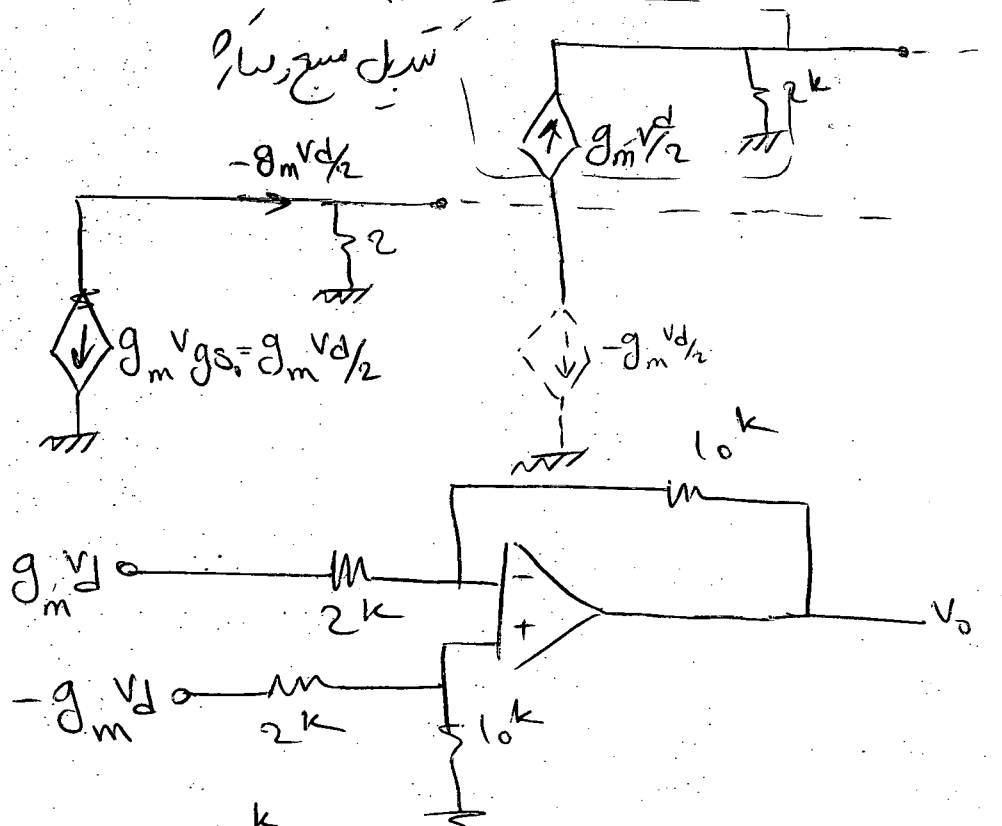 تبدیل منبع بسازیم
2k
gm vd/2
-gm vd/2
2
gm vgs. = gm vd/2
-gm vd/2
10k
gm vd
2k
-
+
Vo
-gm vd
2k
10k
k